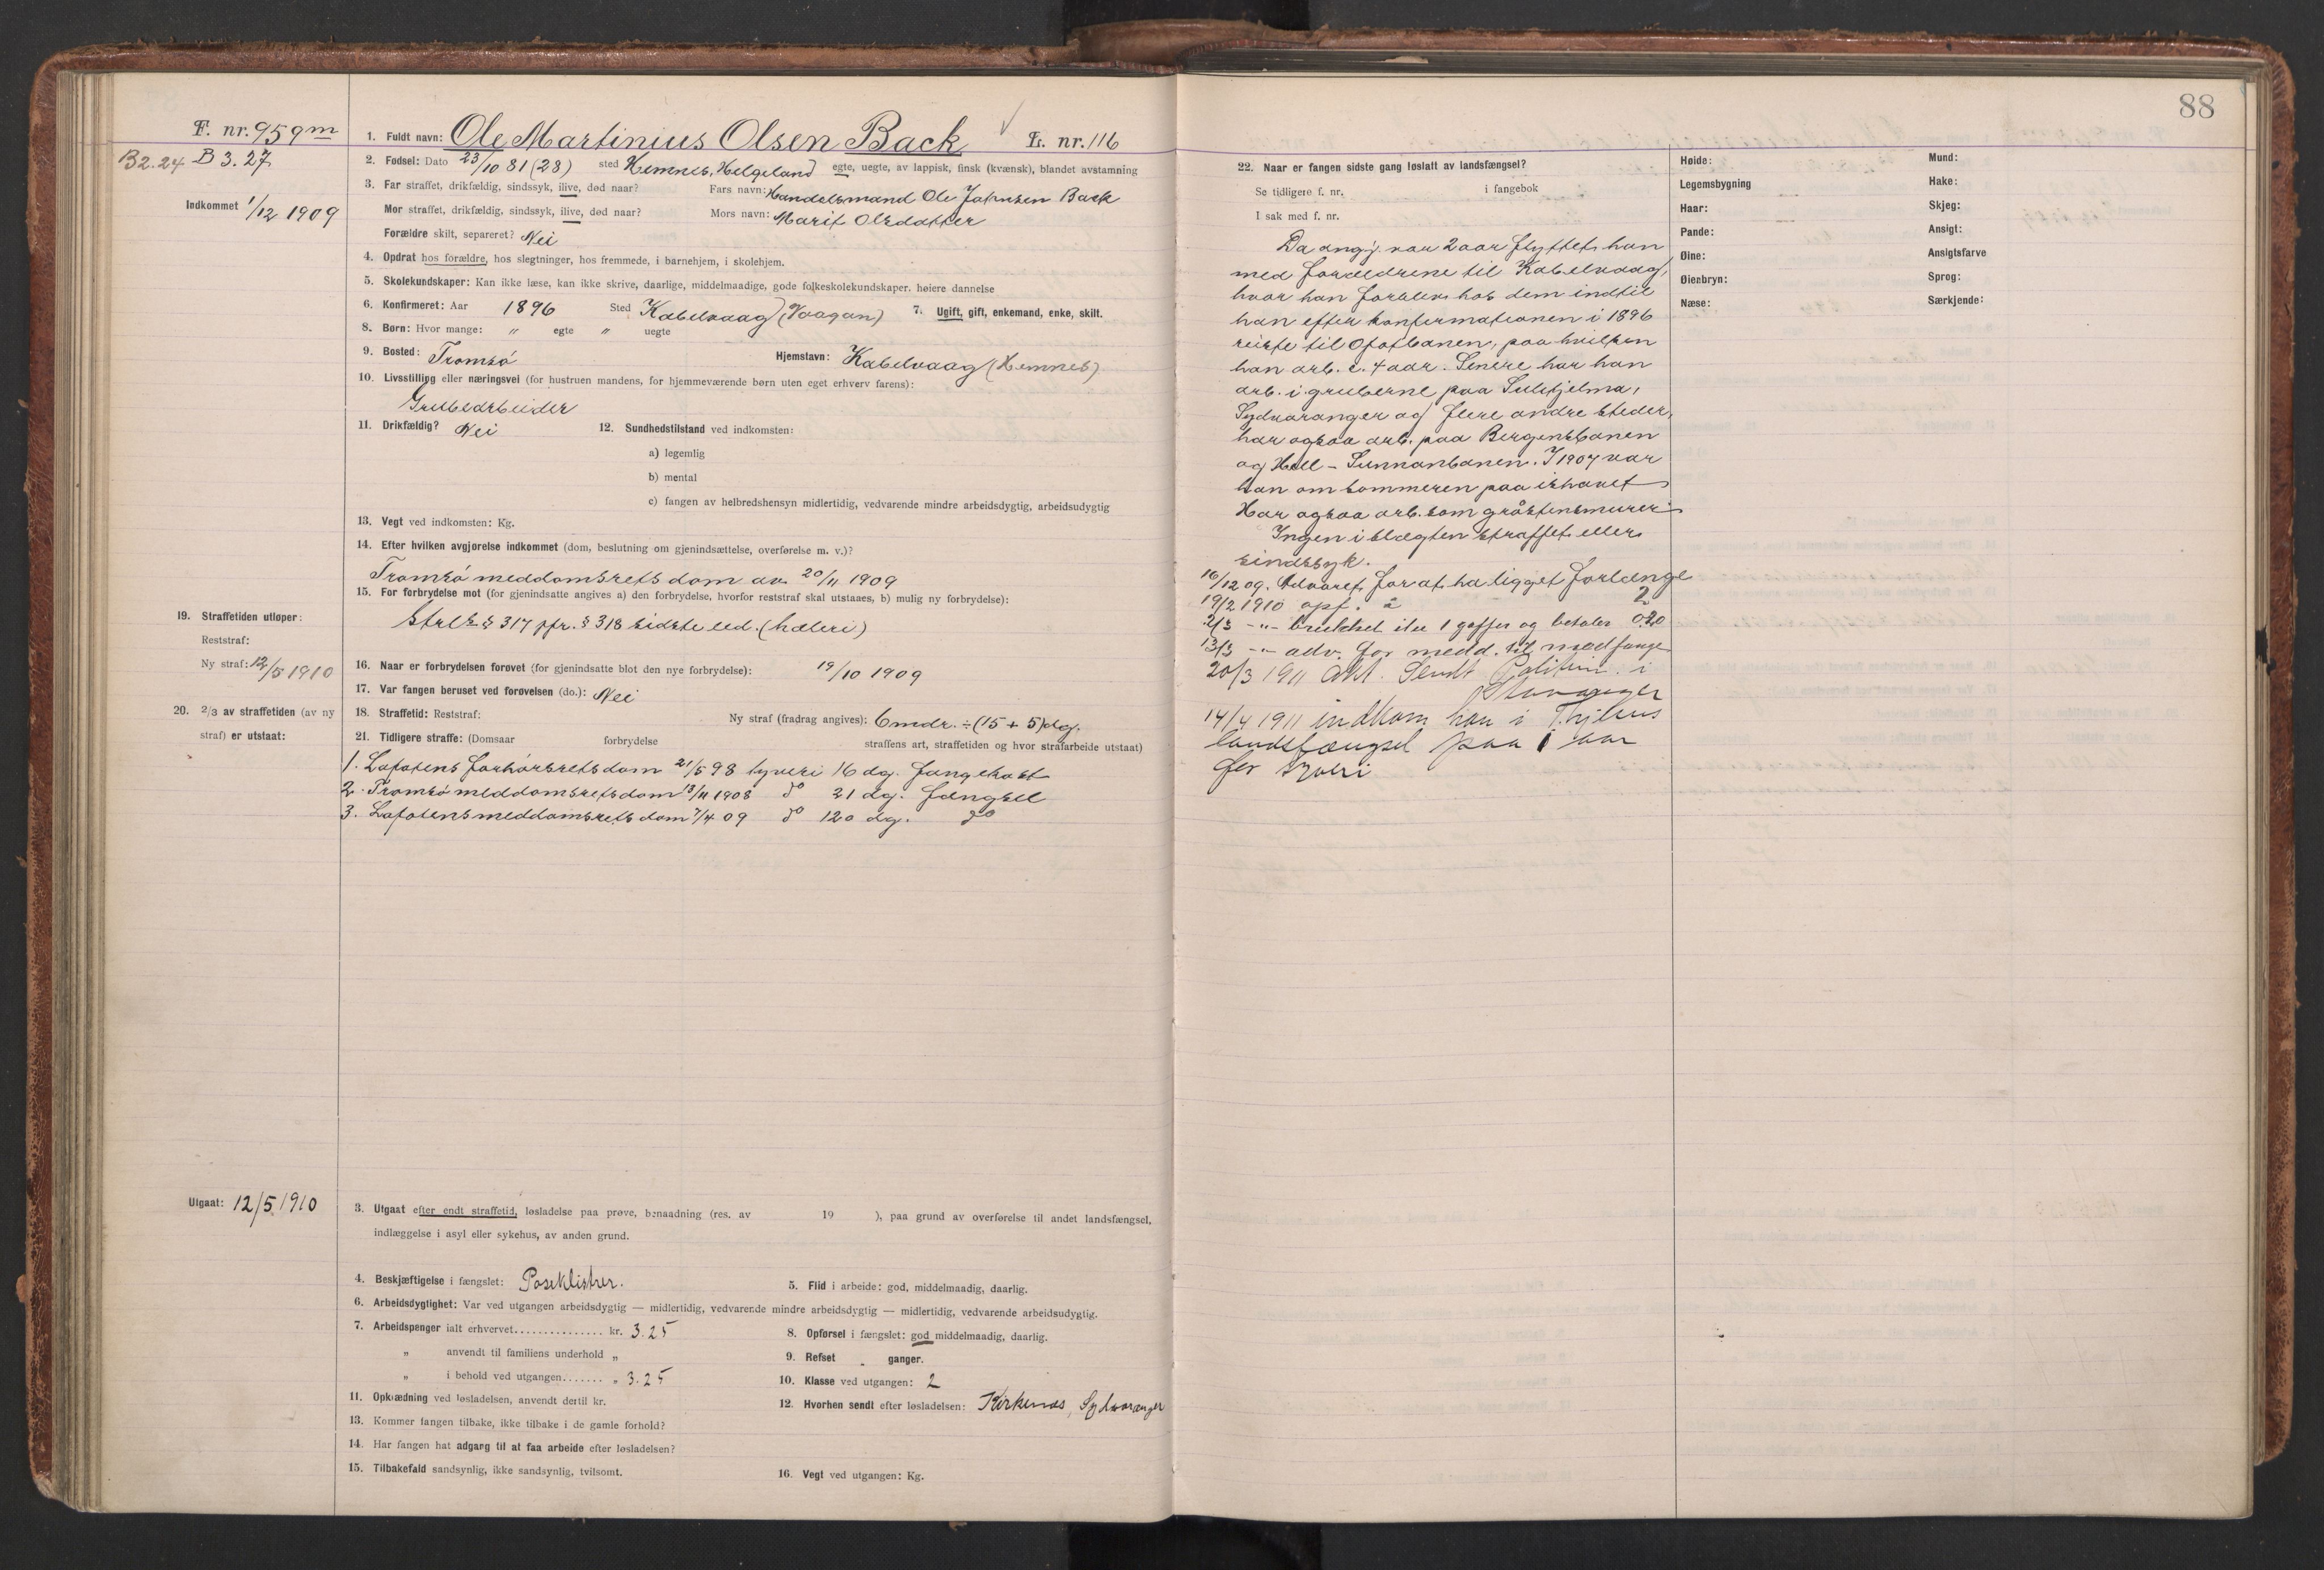 F. nr. 959 m
B2.24 B 3.27
Indkommet 1/12 1909
1. Fuldt navn: Ole Martinius Olsen Back L. nr. 116
2. Fødsel: Dato 23/10 81 (28) sted Hemnes, Helgeland egte, uegte, av lappisk, finsk (kvænsk), blandet avstamning
3. Far straffet, drikfældig, sindssyk, ilive, død naar? Fars navn: Handelsmand Ole Johnsen Back
Mor straffet, drikfældig, sindssyk, ilive, død naar? Mors navn: Marit Olsdatter
Forældre skilt, separeret? Nei
4. Opdrat hos forældre, hos slegtninger, hos fremmede, i barnehjem, i skolehjem.
5. Skolekundskaper: Kan ikke læse, kan ikke skrive, daarlige, middelmaadige, gode folkeskolekundskaper. høiere dannelse
6. Konfirmeret: Aar 1896 Sted Kabelvaag (Vaagan) 7. Ugift, gift, enkemand, enke, skilt.
8. Børn: Hvor mange: " egte " uegte
9. Bosted: Tromsö Hjemstavn: Kabelvaag (Hemnes)
10. Livsstilling eller næringsvei (for hustruen mandens, for hjemmeværende børn uten eget erhverv farens):
Grubearbeider
11. Drikfældig? Nei 12. Sundhedstilstand ved indkomsten:
a) legemlig
b) mental
c) fangen av helbredshensyn midlertidig, vedvarende mindre arbeidsdygtig, arbeidsudygtig
13. Vegt ved indkomsten: Kg.
14. Efter hvilken avgjørelse indkommet (dom, beslutning om gjenindsættelse, overførelse m. v.)?
Tromsö meddomsrets dom av 20/11 1909
15. For forbrydelse mot (for gjenindsatte angives a) den forbrydelse, hvorfor reststraf skal utstaaes, b) mulig ny forbrydelse):
Strls § 317 jfr. § 318 sidste led. (hæleri)
19. Straffetiden utløper:
Reststraf:
Ny straf: 12/5 1910
16. Naar er forbrydelsen forøvet (for gjenindsatte blot den nye forbrydelse): 19/10 1909
17. Var fangen beruset ved forøvelsen (do.): Nei
20. 2/3 av straffetiden (av ny
straf) er utstaat:
18. Straffetid: Reststraf: Ny straf (fradrag angives): 6 mdr. ÷ (15 + 5) dg.
21. Tidligere straffe: (Domsaar forbrydelse straffens art, straffetiden og hvor strafarbeide utstaat)
1. Lofotens forhörsretsdom 21/5 98 tyveri 16 dg. fangekost
2. Tromsö meddomsretsdom 13/11 1908 do 21 dg. fængsel
3. Lofotens meddomsrets dom 7/4 09 do 120 dg. do
Utgaat: 12/5 1910
3. Utgaat efter endt straffetid, løsladelse paa prøve, benaadning (res. av 19 ), paa grund av overførelse til andet landsfængsel,
indlæggelse i asyl eller sykehus, av anden grund.
4. Beskjæftigelse i fængslet: Poseklistrer. 5. Flid i arbeide: god, middelmaadig, daarlig.
6. Arbeidsdygtighet: Var ved utgangen arbeidsdygtig — midlertidig, vedvarende mindre arbeidsdygtig — midlertidig, vedvarende arbeidsudygtig.
7. Arbeidspenger ialt erhvervet............... kr. 3.25 8. Opførsel i fængslet: god middelmaadig, daarlig.
" anvendt til familiens underhold " 9. Refset " ganger.
" i behold ved utgangen....... " 3.25 10. Klasse ved utgangen: 2
11. Opklædning ved løsladelsen, anvendt dertil kr. 12. Hvorhen sendt efter løsladelsen: Kirkenæs, Sydvaranger
13. Kommer fangen tilbake, ikke tilbake i de gamle forhold?
14. Har fangen hat adgang til at faa arbeide efter løsladelsen?
15. Tilbakefald sandsynlig, ikke sandsynlig, tvilsomt. 16. Vegt ved utgangen: Kg.
88
22. Naar er fangen sidste gang løslatt av landsfængsel?
Se tidligere f. nr. i fangebok
I sak med f. nr.
Da angj. var 2 aar flyttet han
med foræeldrene til Kabelvaag,
hvor han forblev hos dem indtil
han efter konfirmationen i 1896
reiste til Ofotbanen, paa hvilken
han arb. c. 4 aar. Senere har han
arb. i gruberne paa Sulitjelma,
Sydvaranger og flere andre steder,
har ogsaa arb. paa Bergensbanen
og Hell - Sunnanbanen. I 1907 var
han om sommeren paa ishavet
Har ogsaa arb. som gråstensmurer
Ingen i slægten straffet eller
sindssyk.
16/12 09. Advaret for at ha ligget forlænge
19/2 1910 opf. i 2
2/3 -"- brukket itu 1 gaffel og betaler 0.20
13/3 -"- adv. for medd. til medfange
20/3 1911 Akt. Sendt Politim. i
Stavanger
14/4 1911 indkom han i Thjems
landsfængsel paa 1 aar
for tyveri
Høide: Mund:
Legemsbygning Hake:
Haar: Skjeg:
Pande: Ansigt:
Øine: Ansigtsfarve
Øienbryn: Sprog:
Næse: Særkjende: